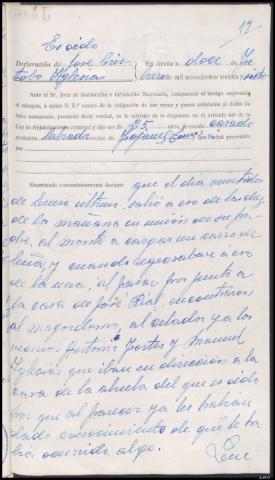 17
Es oido
Declaración de José Cris-
tobo Iglesias
En Arzúa a doce de Fe-
brero de mil novecientos treinta y siete
Ante el Sr. Juez de instrucción e infrascrito Secretario, compareció el testigo expresado
al margen, a quien S. S.ª enteró de la obligación de ser veraz y penas señaladas al delito de
falso testimonio, prometió decir verdad, se le advirtió de lo dispuesto en el artículo 446 de la
Ley de Enjuiciamiento criminal y dijo ser de 25 años, de estado casado
labrador
procesado
Examinado convenientemente declaro: que el día veintidos
de Enero último, salió a eso de las diez
de la mañana en unión de su pa-
dre, al monte a cargar un carro de
leña, y cuando regresaban a eso
de la una, al pasar por junto a
la casa de José Rial, encontraron
al mayordomo, al celador y a los
vecinos Antonio Fortes y Manuel
Iglesias que iban en dirección a la
casa de la abuela del que es oido
por que al parecer ya les habían
dado conocimiento de que le ha-
bía ocurrido algo.
Que